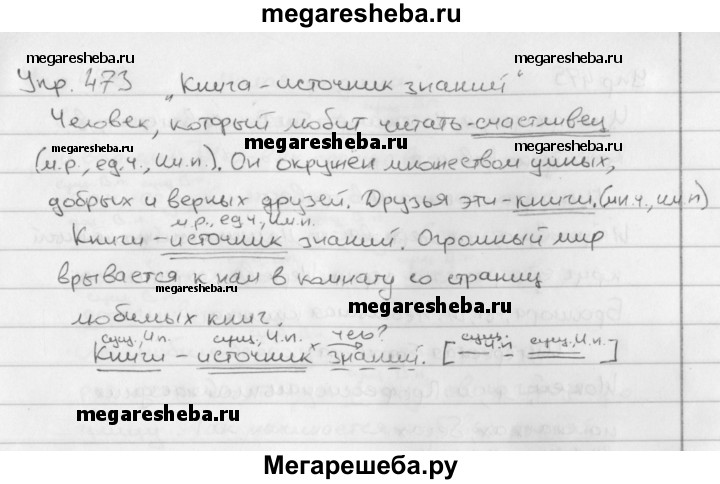 megaresheba.ru
megaresheba.ru megaresheba.ru
Упр. 473 „Книга - источник знаний“
Человек, который любит читать - счастливец
megaresheba.ru
(м.р., ед.ч., Им.п.). Он окружен множеством умных,
добрых и верных друзей. Друзья эти - книги. (мн.ч., им.п)
м.р., ед.ч, Им.п.
Книги - источник знаний. Огромный мир
врывается к нам в комнату со страниц
megaresheba.ru
megaresheba.ru
любимых книг.
сущ., И.п. сущ., И.п. × чего? сущ., И.п сущ., И.п.
Книги - источник знаний. [ - ]
megaresheba.ru
Мегарешеба.ру